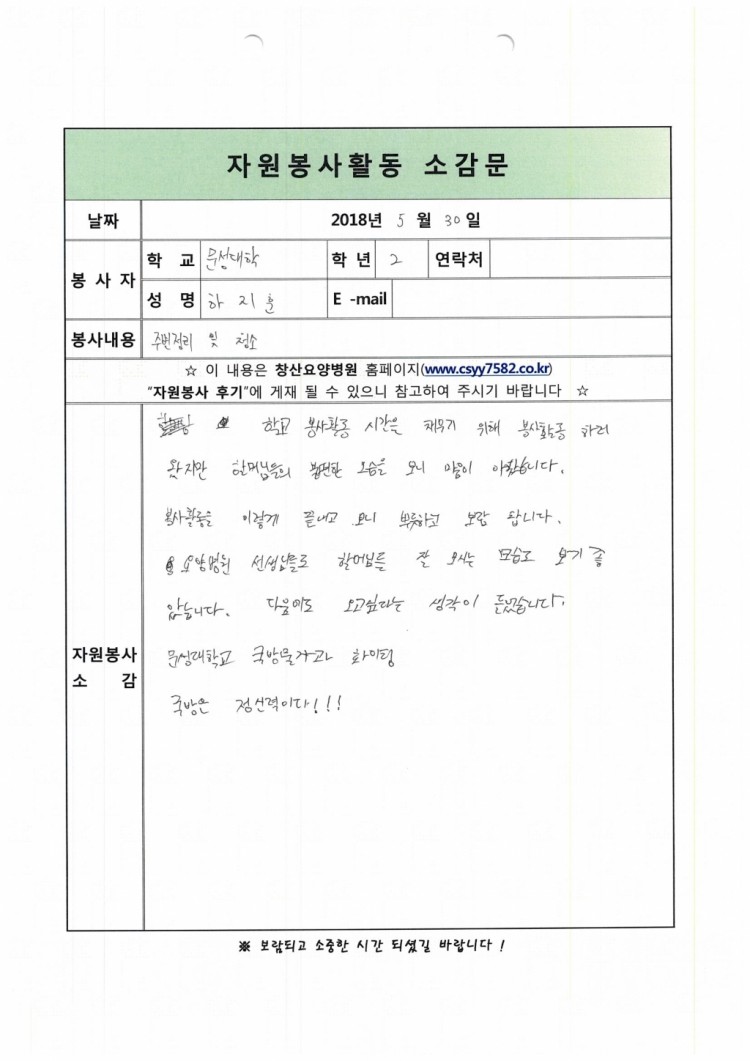 자원봉사활동 소감문
날짜 2018년 5 월 30 일
봉 사 자 학 교 문성대학 학 년 2 연락처
성 명 하 지 훈 E -mail
봉사내용 주변정리 및 청소
☆ 이 내용은 창산요양병원 홈페이지(www.csyy7582.co.kr)
"자원봉사 후기"에 게재 될 수 있으니 참고하여 주시기 바랍니다 ☆
자원봉사 소 감
학교 봉사활동 시간을 채우기 위해 봉사활동 하러
왔지만 할머님들의 불편한 모습을 보니 맘이 아팠습니다.
봉사활동을 이렇게 끝내고 보니 뿌듯하고 보람 찹니다.
요양병원 선생님들도 할머님들 잘 모시는 모습도 보기 좋
았습니다. 다음에도 오고싶다는 생각이 들었습니다.
문성대학교 국방물자과 화이팅
국방은 정신력이다!!!
※ 보람되고 소중한 시간 되셨길 바랍니다 !